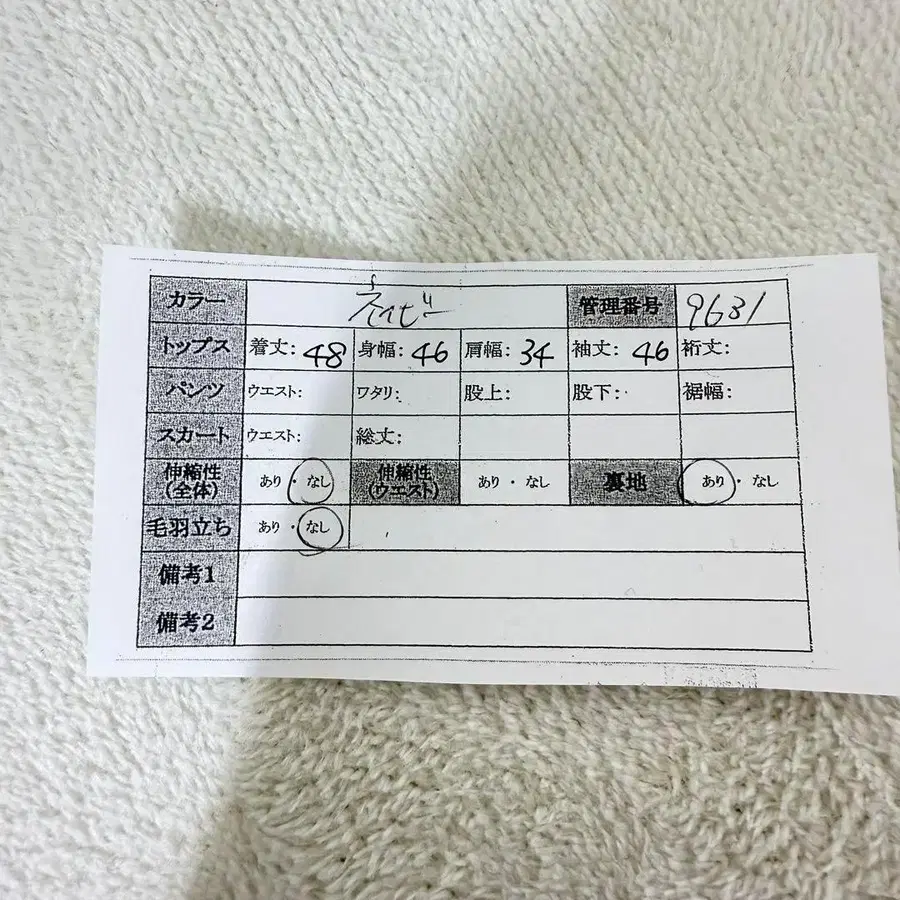 カラー ネイビー 管理番号 9631
トップス 着丈: 48 身幅: 46 肩幅: 34 袖丈: 46 裄丈:
パンツ ウエスト: ワタリ: 股上: 股下: 裾幅:
スカート ウエスト: 総丈:
伸縮性(全体) あり・なし 伸縮性(ウエスト) あり・なし 裏地 あり・なし
毛羽立ち あり・なし
備考1
備考2